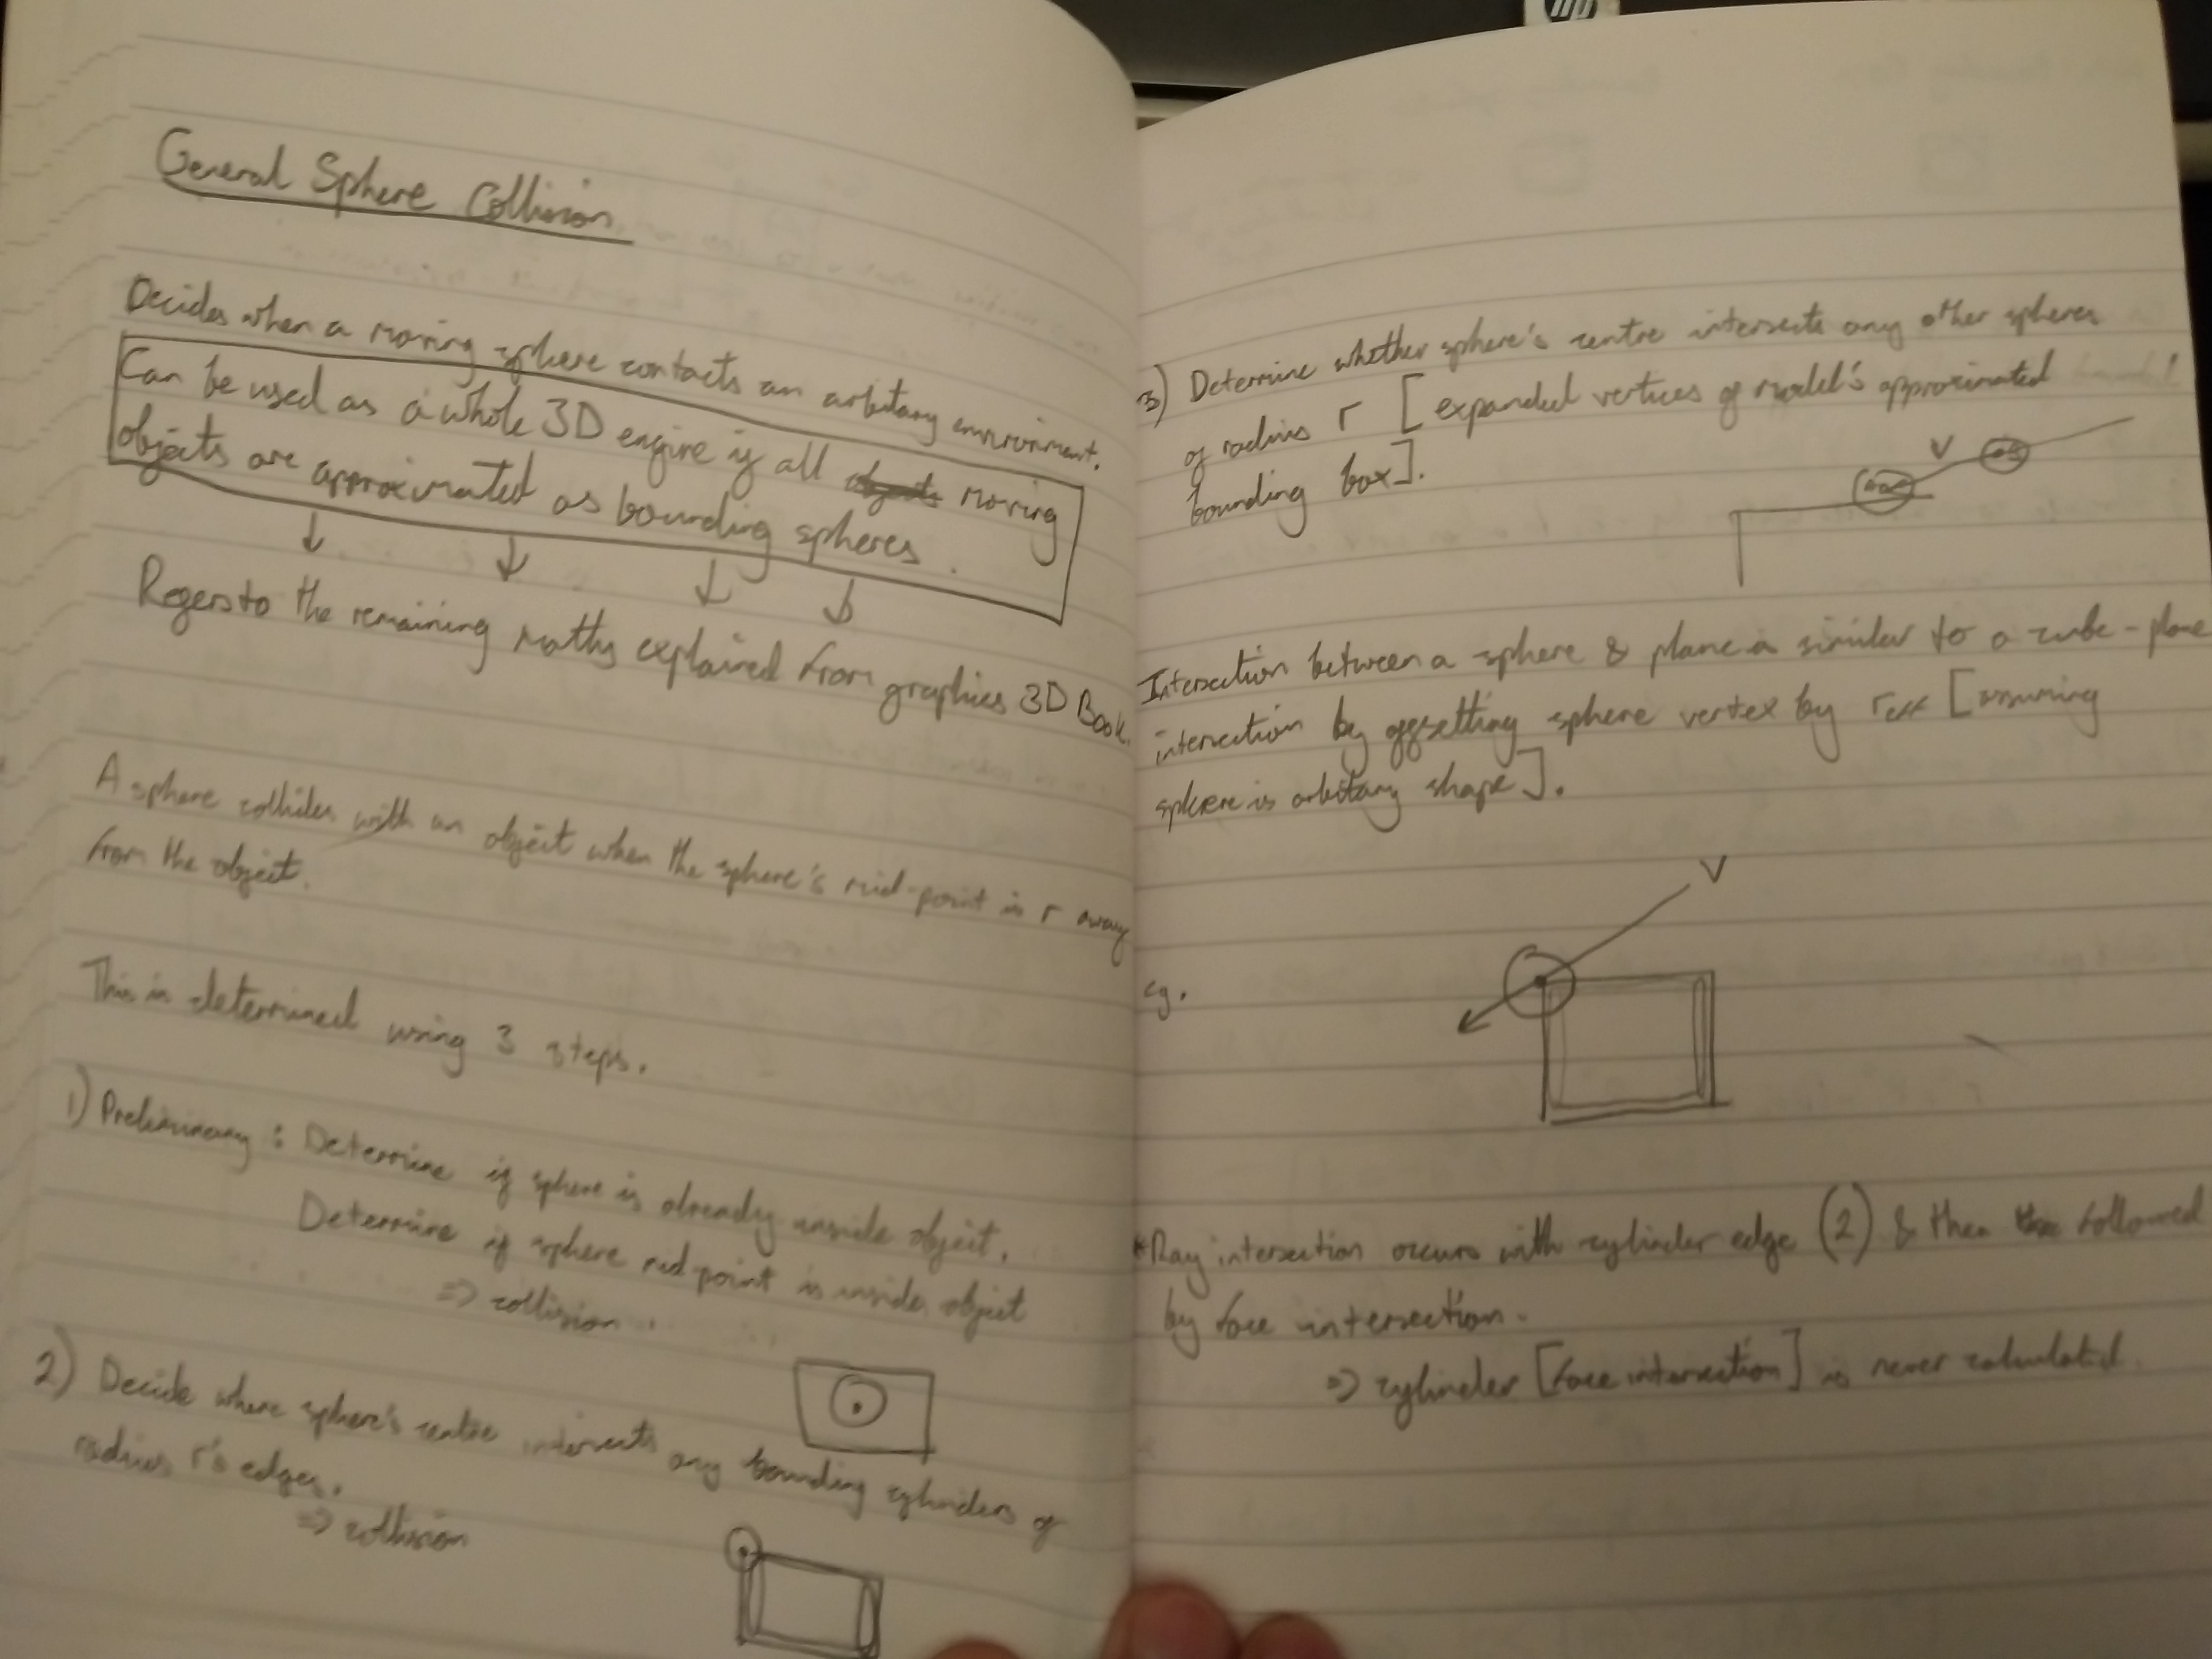 General Sphere Collision
Decides when a moving sphere contacts an arbitary environment.
Can be used as a whole 3D engine if all objects moving
objects are approximated as bounding spheres.
Refers to the remaining maths explained from graphics 3D Book.
A sphere collides with an object when the sphere's mid-point is r away
from the object.
This is determined using 3 steps.
1) Preliminary : Determine if sphere is already inside object.
Determine if sphere mid point is inside object
=> collision.
2) Decide where sphere's centre intersects any bounding cylinders of
radius r's edges.
=> collision
hp
3) Determine whether sphere's centre intersects any other spheres
of radius r [expanded vertices of model's approximated
bounding box].
V
Intersection between a sphere & plane is similar to a cube-plane
intersection by offsetting sphere vertex by reff [assuming
sphere is arbitary shape].
V
eg.
*Ray intersection occurs with cylinder edge (2) & then followed
by face intersection.
=> cylinder [face intersection] is never calculated.